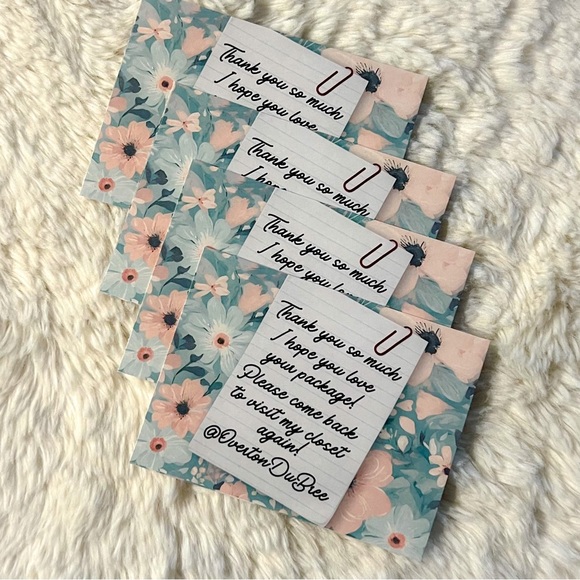 Thank you so much
I hope you love
Thank you so much
I hope you
Thank you so much
I hope you love
Thank you so much
I hope you love
your package!
Please come back
to visit my closet
again!
@OvertonDuBree